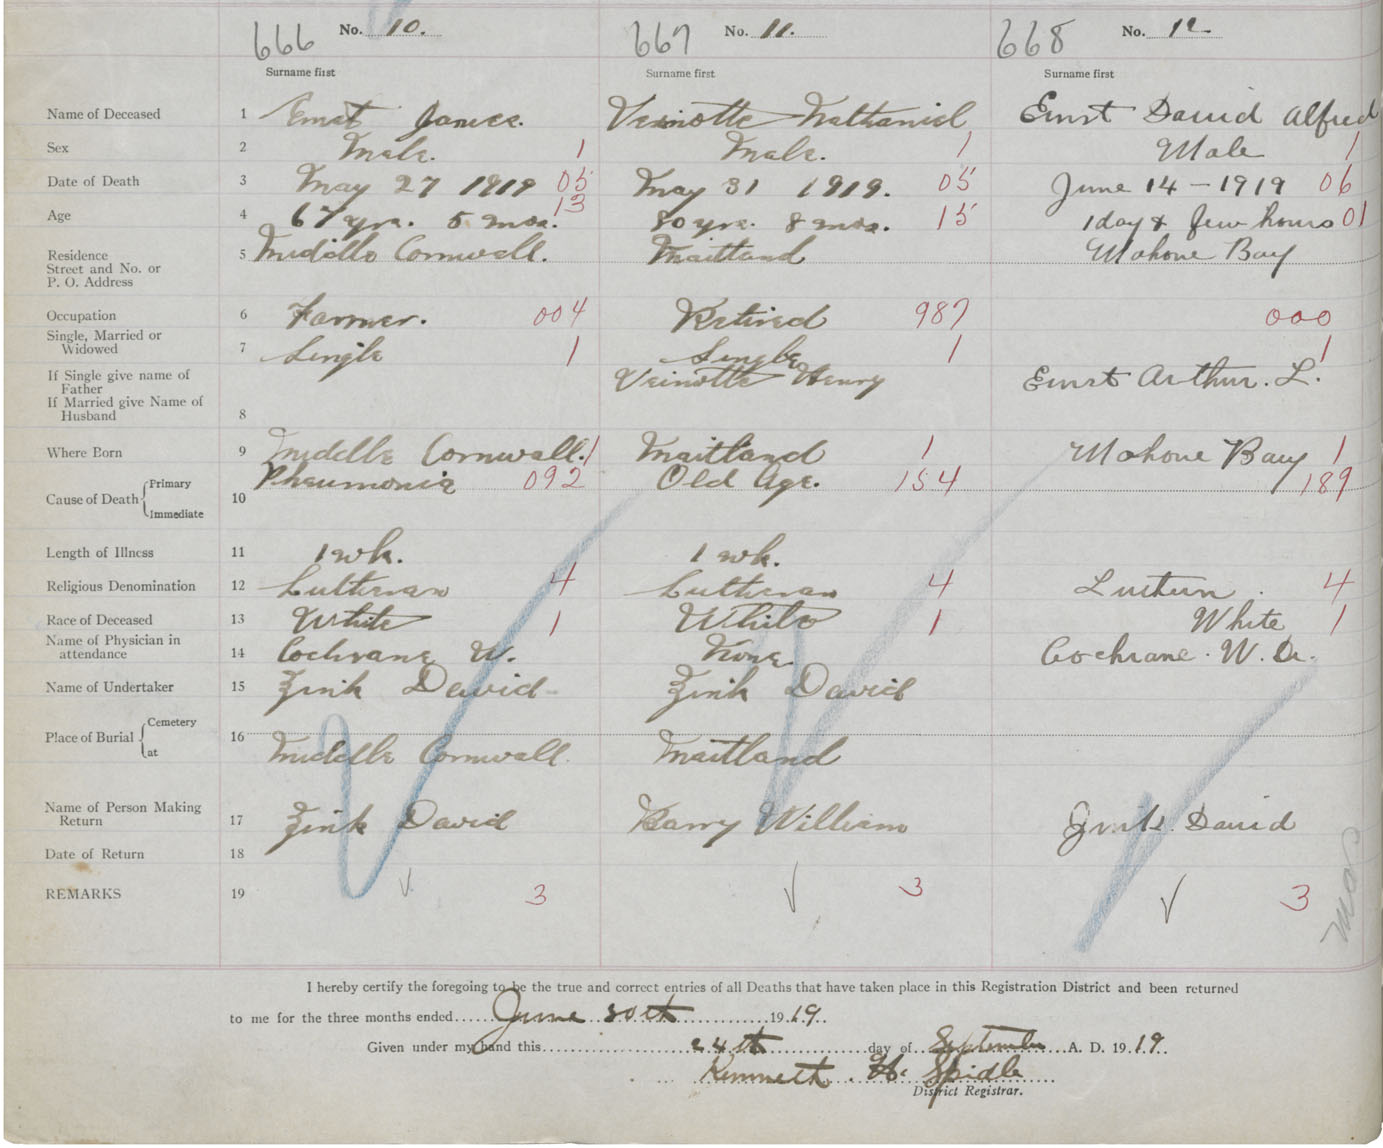 666 No. 10. 667 No. 11. 668 No. 12
Surname first Surname first Surname first
Name of Deceased 1 Ernst James. Veinotte Nathaniel Ernst David Alfred
Sex 2 Male. 1 Male. 1 Male 1
Date of Death 3 May 27 1919 05 May 31 1919. 05 June 14 - 1919 06
Age 4 67 yrs. 5 mos. 13 80 yrs. 8 mos. 15 1 day & few hours 01
Residence
Street and No. or
P. O. Address 5 Middle Cornwall. Maitland Mahone Bay
Occupation 6 Farmer. 004 Retired 987 000
Single, Married or
Widowed 7 Single 1 Single 1 1
If Single give name of
Father Veinotte Henry Ernst Arthur. L.
If Married give Name of
Husband 8
Where Born 9 Middle Cornwall. 1 Maitland 1 Mahone Bay 1
Cause of Death Primary Pneumonia 092 Old Age. 154 189
10
Immediate
Length of Illness 11 1 wk. 1 wk.
Religious Denomination 12 Lutheran 4 Lutheran 4 Luthern. 4
Race of Deceased 13 White 1 White 1 White 1
Name of Physician in
attendance 14 Cochrane W. None Cochrane. W. Dr.
Name of Undertaker 15 Zink David Zink David
Place of Burial Cemetery
16
at Middle Cornwall Maitland
Name of Person Making
Return 17 Zink David Barry William Zink. David
Date of Return 18
REMARKS 19 3 3 3
I hereby certify the foregoing to be the true and correct entries of all Deaths that have taken place in this Registration District and been returned
to me for the three months ended June 30th 1919.
Given under my hand this 24th day of September A. D. 1919.
Kenneth H. Spidle
District Registrar.